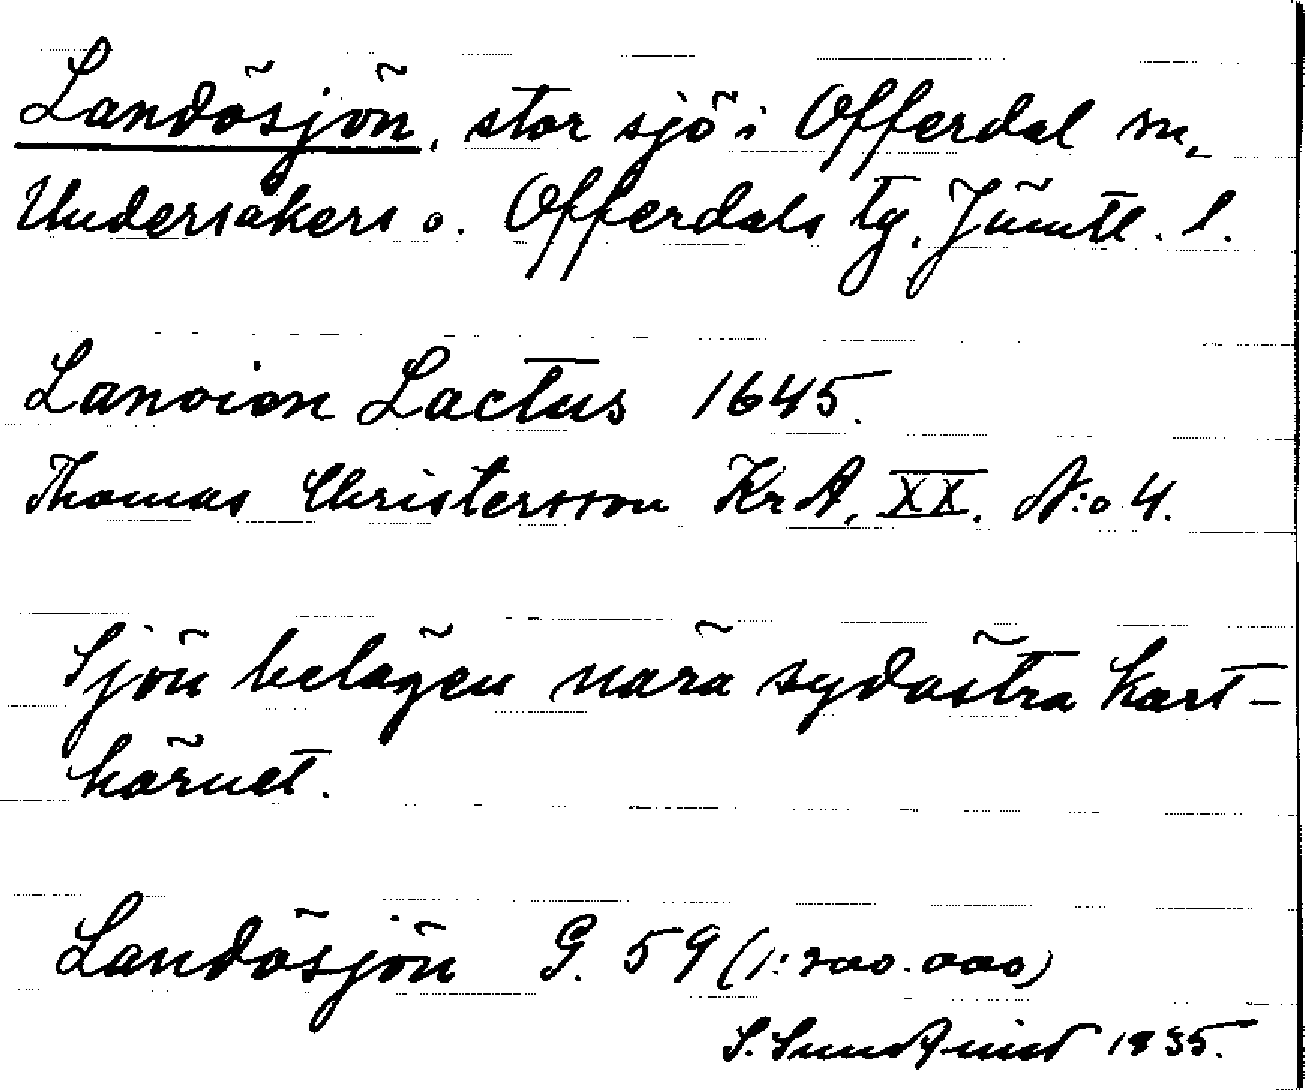 Landösjön, stor sjö i Offerdal sn,
Undersåkers o. Offerdals tg. Jämtl. l.
Lanoion Lactus 1645.
Thomas Christersson KrA, XX. N:o 4.
Sjön belägen nära sydöstra kart-
hörnet.
Landösjön G. 59 (1:200.000)
S. Sundqvist 1935.